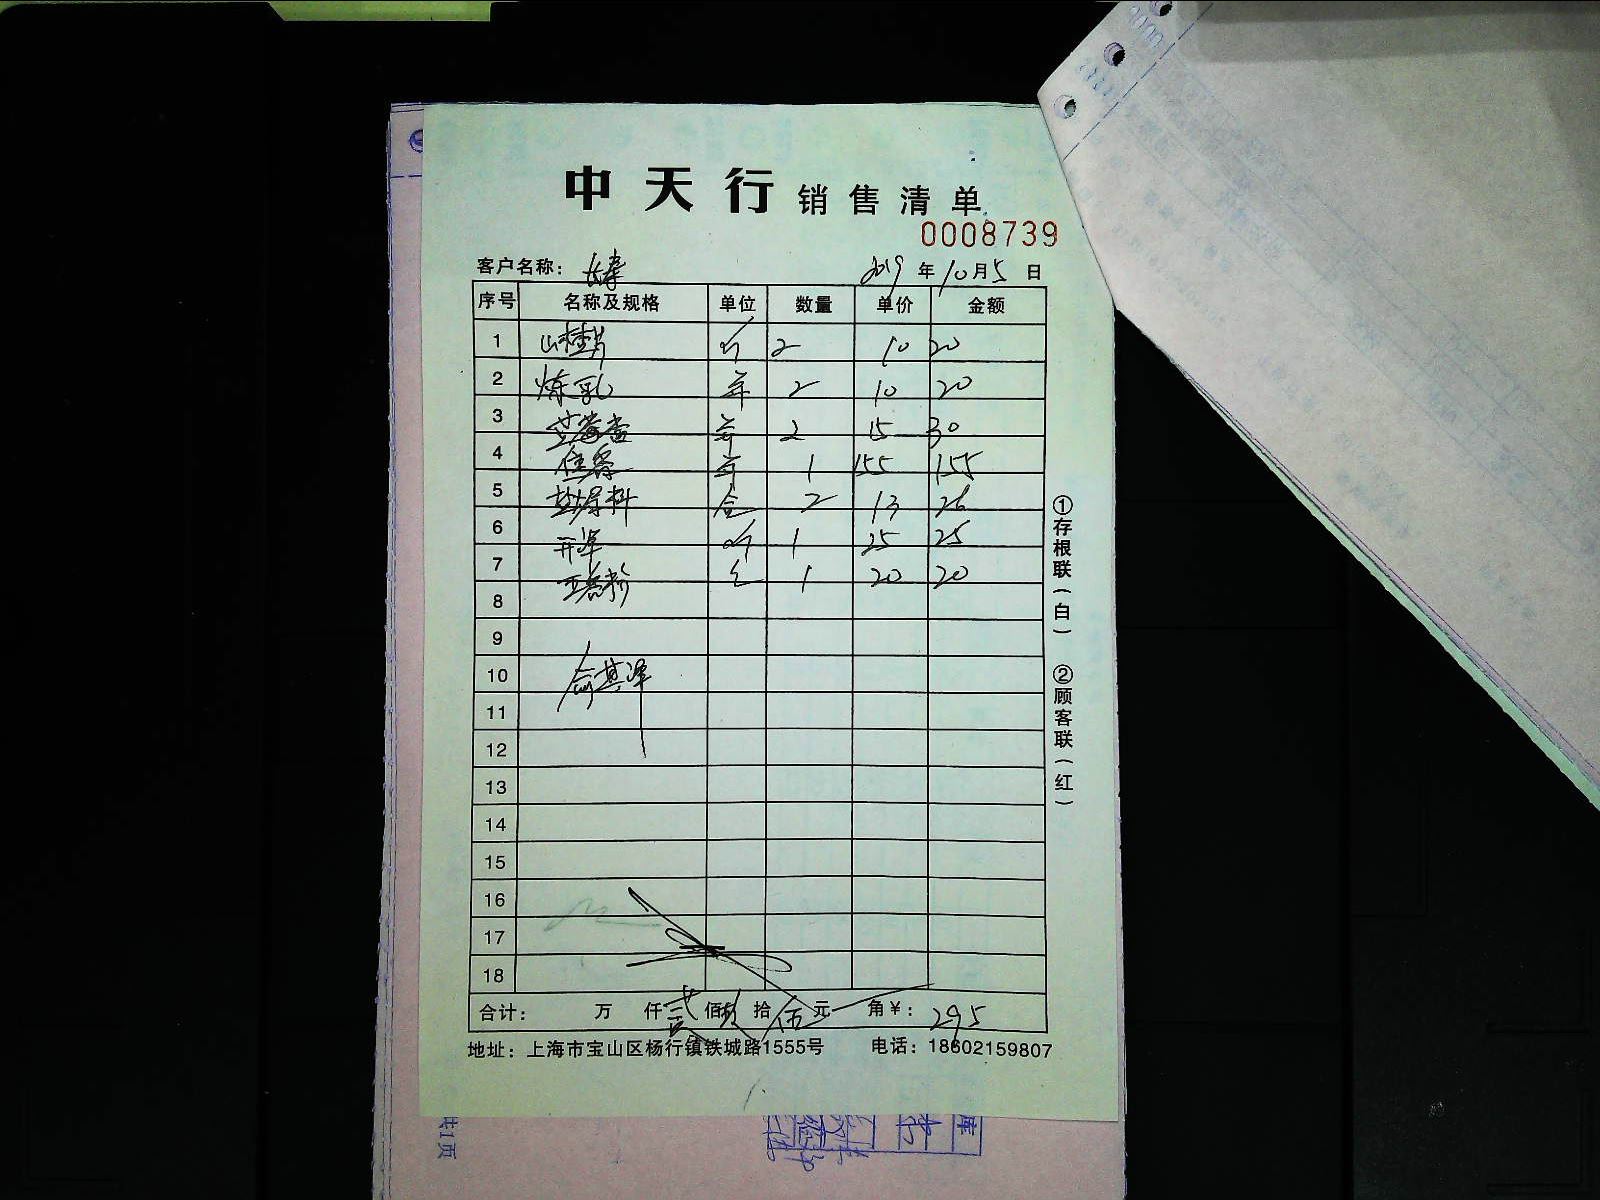 中天行 销售清单
0008739
客户名称： 长寿 2019 年 10 月 5 日
序号 名称及规格 单位 数量 单价 金额
1 山楂片 听 2 10 20
2 炼乳 2 10 20
3 2 15 30
4 1 155 155
5 盐焗料 合 2 13 26
6 听 1 25 25
7 1 20 20
8
9
10
11
12
13
14
15
16
17
18
合计： 万 仟 贰 佰 玖 拾 伍 元 角 ¥： 295
地址：上海市宝山区杨行镇铁城路1555号 电话：18602159807
①存根联（白） ②顾客联（红）
共1页